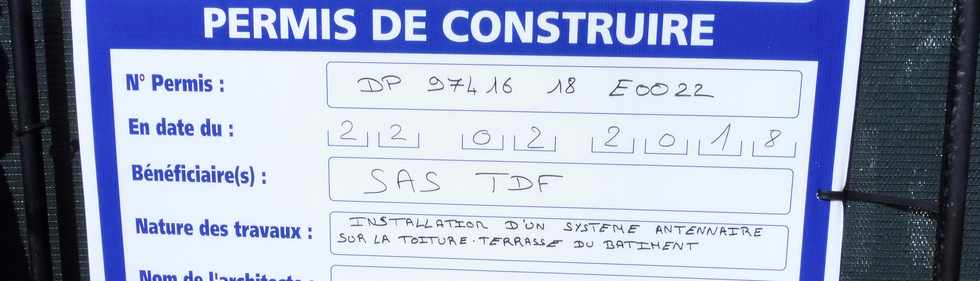 PERMIS DE CONSTRUIRE
N° Permis : DP 97416 18 E0022
En date du : 22 02 2018
Bénéficiaire(s) : SAS TDF
Nature des travaux : INSTALLATION D'UN SYSTEME ANTENNAIRE
SUR LA TOITURE-TERRASSE DU BATIMENT
Nom de l'architecte :